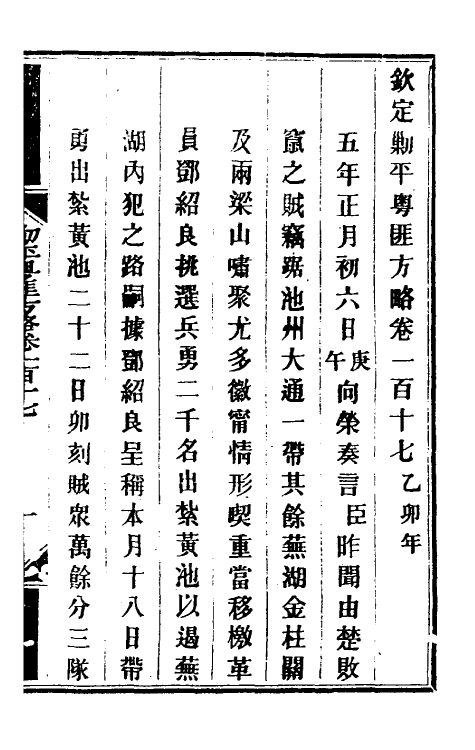 欽定剿平粵匪方略卷一百十七乙卯年
五年正月初六日庚午向榮奏言臣昨聞由楚敗
竄之賊竊踞池州大通一帶其餘蕪湖金柱關
及兩梁山嘯聚尤多徽甯情形喫重當移檄革
員鄧紹良挑選兵勇二千名出紮黃池以遏蕪
湖內犯之路嗣據鄧紹良呈稱本月十八日帶
勇出紮黃池二十二日卯刻賊眾萬餘分三隊
卷一百十七
一